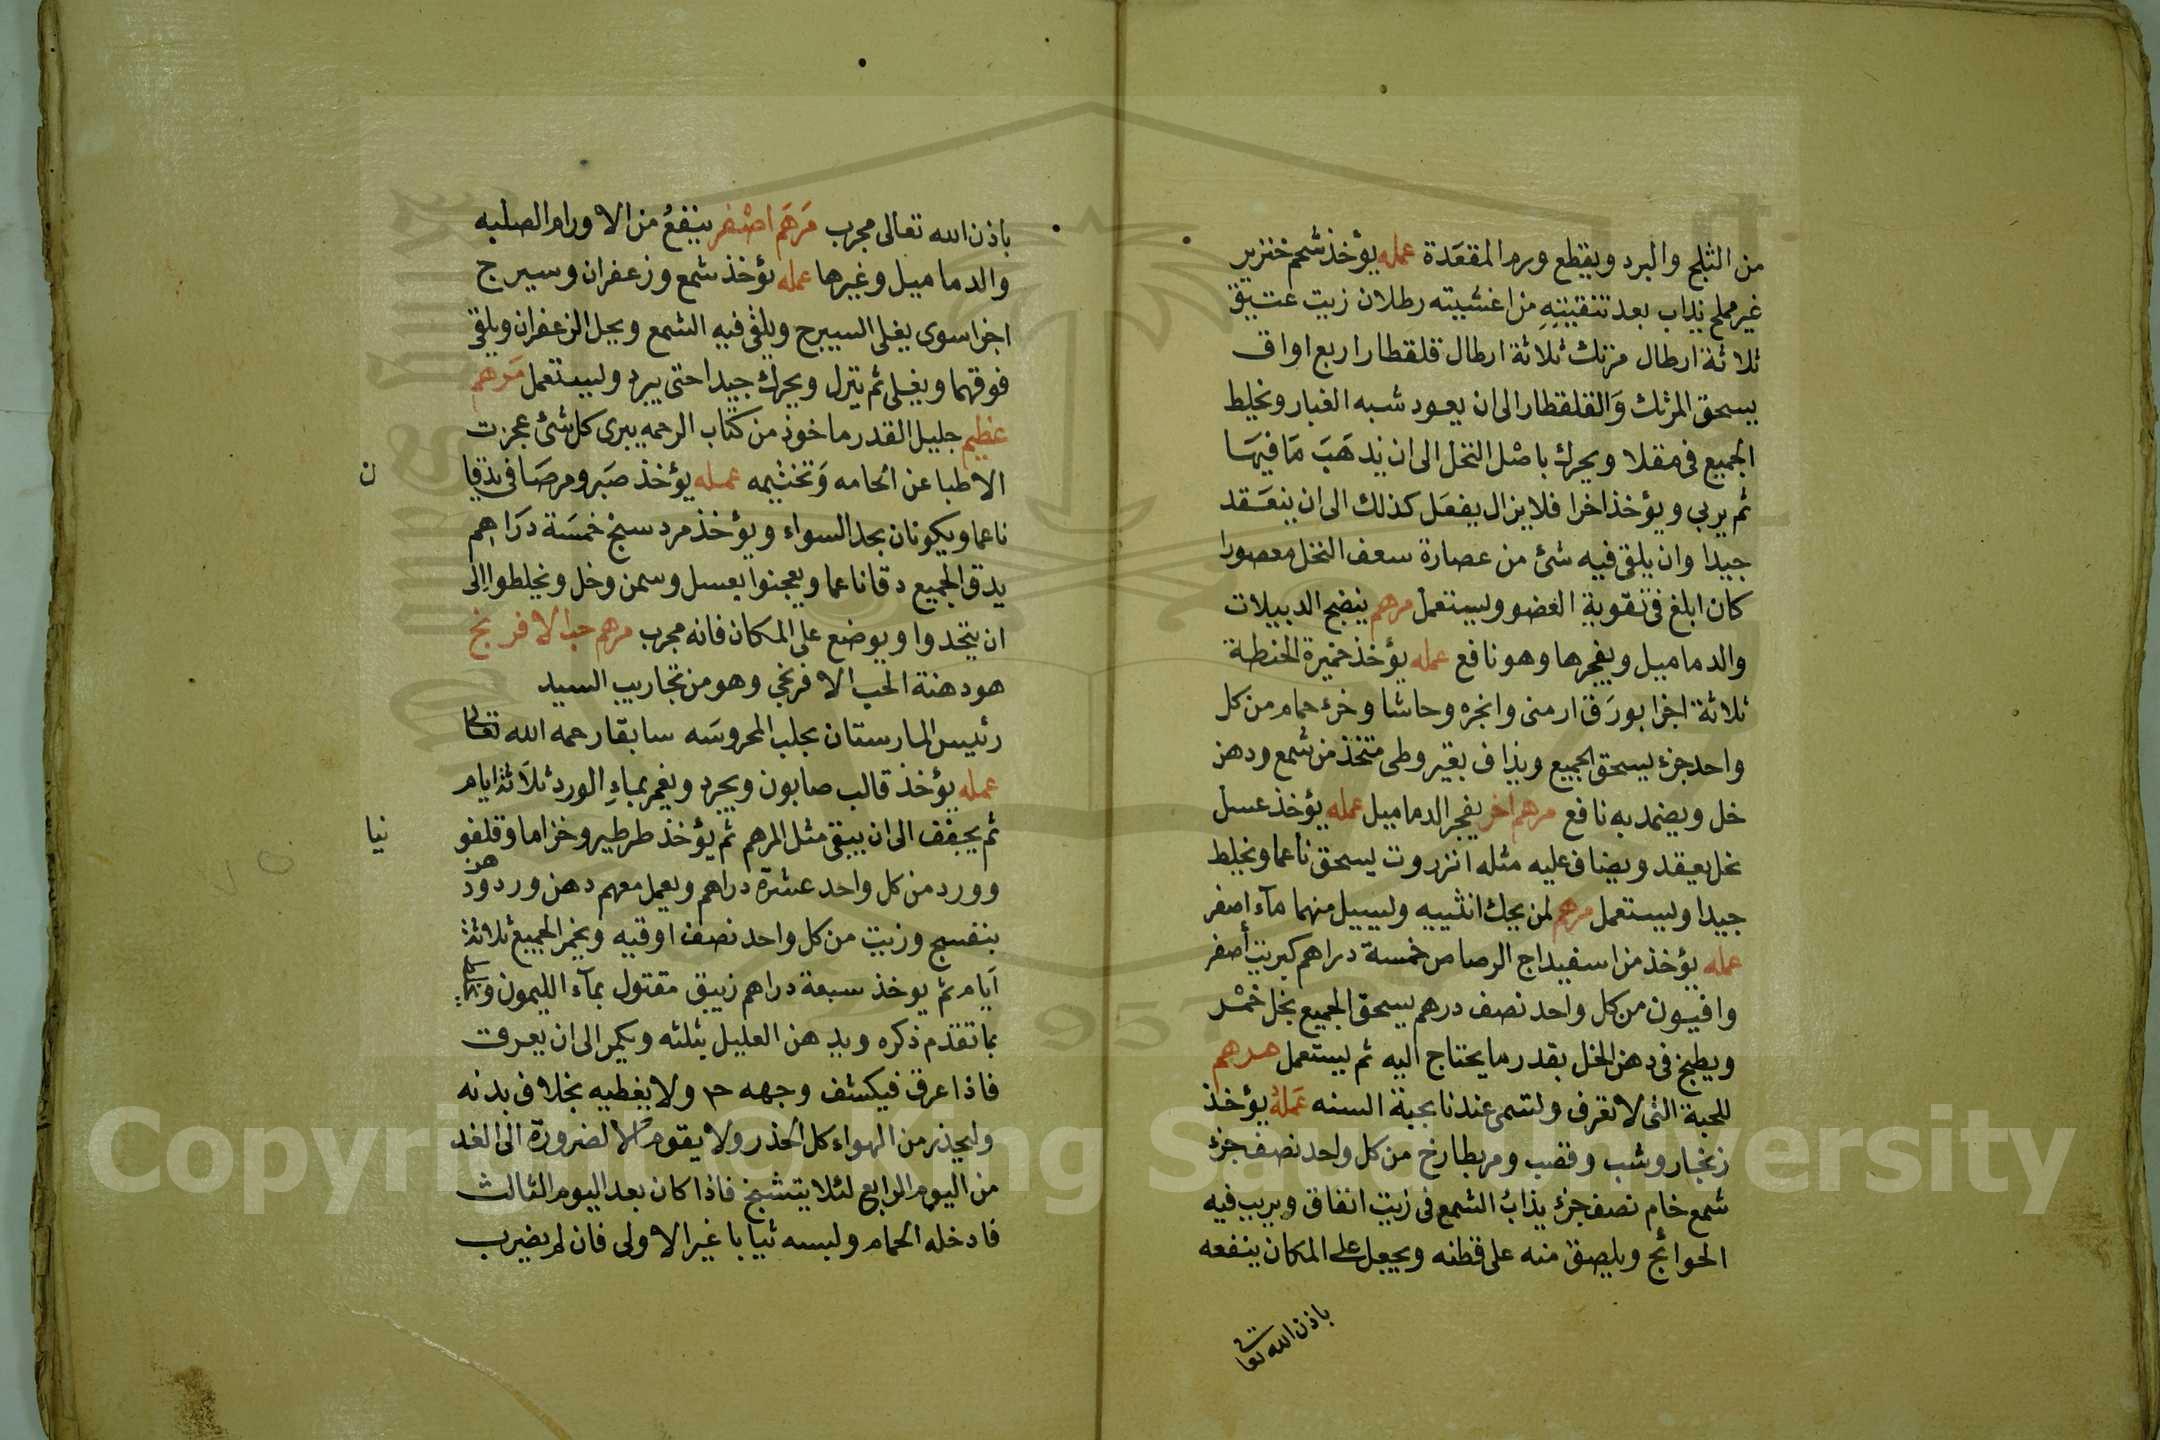 من الثلج والبرد ويقطع ورم المقعدة عمله يؤخذ شحم خنزير
غير مملح يذاب بعد تنقيته من اغشيته رطلان زيت عتيق
ثلاثة ارطال مرتك ثلاثة ارطال قلقطار اربع اواق
يسحق المرتك والقلقطار الى ان يعود شبه الغبار ويخلط
الجميع فى مقلا ويحرك باصل النخل الى ان يذهب ما فيها
ثم يربى ويؤخذ اخرا فلا يزال يفعل كذلك الى ان ينعقد
جيدا وان يلقى فيه شئ من عصارة سعف النخل معصورا
كان ابلغ فى تقوية العضو وليستعمل مرهم ينضج الدبيلات
والدماميل ويفجرها وهو نافع عمله يؤخذ خميرة الحنطة
ثلاثة اجزا بورق ارمنى وانجره وحاشا وخرء حمام من كل
واحد جزء يسحق الجميع ويذاف بقيروطى متخذ من شمع ودهن
خل ويضمد به نافع مرهم اخر يفجر الدماميل عمله يؤخذ عسل
نحل يعقد ويضاف عليه مثله انزروت يسحق ناعما ويخلط
جيدا وليستعمل مرهم لمن يحك انثييه وليسيل منهما مآء اصفر
عمله يؤخذ من اسفيداج الرصاص خمسة دراهم كبريت أصفر
وافيون من كل واحد نصف درهم يسحق الجميع بخل خمر
ويطبخ فى دهن الخل بقدر ما يحتاج اليه ثم ليستعمل مرهم
للحبة التى لا تعرف ولتسمى عندنا بحبة السنه عمله يؤخذ
زنجار وشب وقضب ومربطارخ من كل واحد نصف جزء
شمع خام نصف جزء يذاب الشمع فى زيت انفاق ويربب فيه
الحوائج ويلصق منه على قطنه ويجعل على المكان ينفعه
باذن الله تعا
باذن الله تعالى مجرب مرهم اصفر ينفع من الاورام الصلبه
والدماميل وغيرها عمله يؤخذ شمع وزعفران وسيرج
اجزا سوى يغلى السيرج ويلقى فيه الشمع ويحل الزعفران ويلقى
فوقهما ويغلى ثم ينزل ويحرك جيدا حتى يبرد وليستعمل مرهم
عظيم جليل القدر ماخوذ من كتاب الرحمه يبرى كل شئ عجزت
الاطبا عن الحامه وتختيمه عمله يؤخذ صبر ومر صافى يدقا
ن
ناعما ويكونان بحد السواء ويؤخذ مردسنج خمسة دراهم
يدق الجميع دقا ناعما ويعجنوا بعسل وسمن وخل ويخلطوا الى
ان يتحدوا ويوضع على المكان فانه مجرب مرهم حب الافرنج
هو دهنة الحب الافرنجى وهو من تجاريب السيد
رئيس المارستان بحلب المحروسه سابقا رحمه الله تعالى
عمله يؤخذ قالب صابون ويجرد ويغمر بماء الورد ثلاثة ايام
ثم يجفف الى ان يبقى مثل المرهم ثم يؤخذ طرطير وخزاما وقلفو
نيا
وورد من كل واحد عشرة دراهم ويعمل معهم دهن ورد ودهن
بنفسج وزيت من كل واحد نصف اوقيه ويخمر الجميع ثلاثة
ايام ثم يوخذ سبعة دراهم زيبق مقتول بمآء الليمون
بما تقدم ذكره ويدهن العليل بثلثه ويكمر الى ان يعرق
فاذا عرق فيكشف وجهه ولا يغطيه بخلاف بدنه
وليحذر من الهواء كل الحذر ولا يقوم الا لضرورة الى الغد
من اليوم الرابع لئلا يتشبخ فاذا كان بعد اليوم الثالث
فادخله الحمام ولبسه ثيابا غير الاولى فان لم يضرب